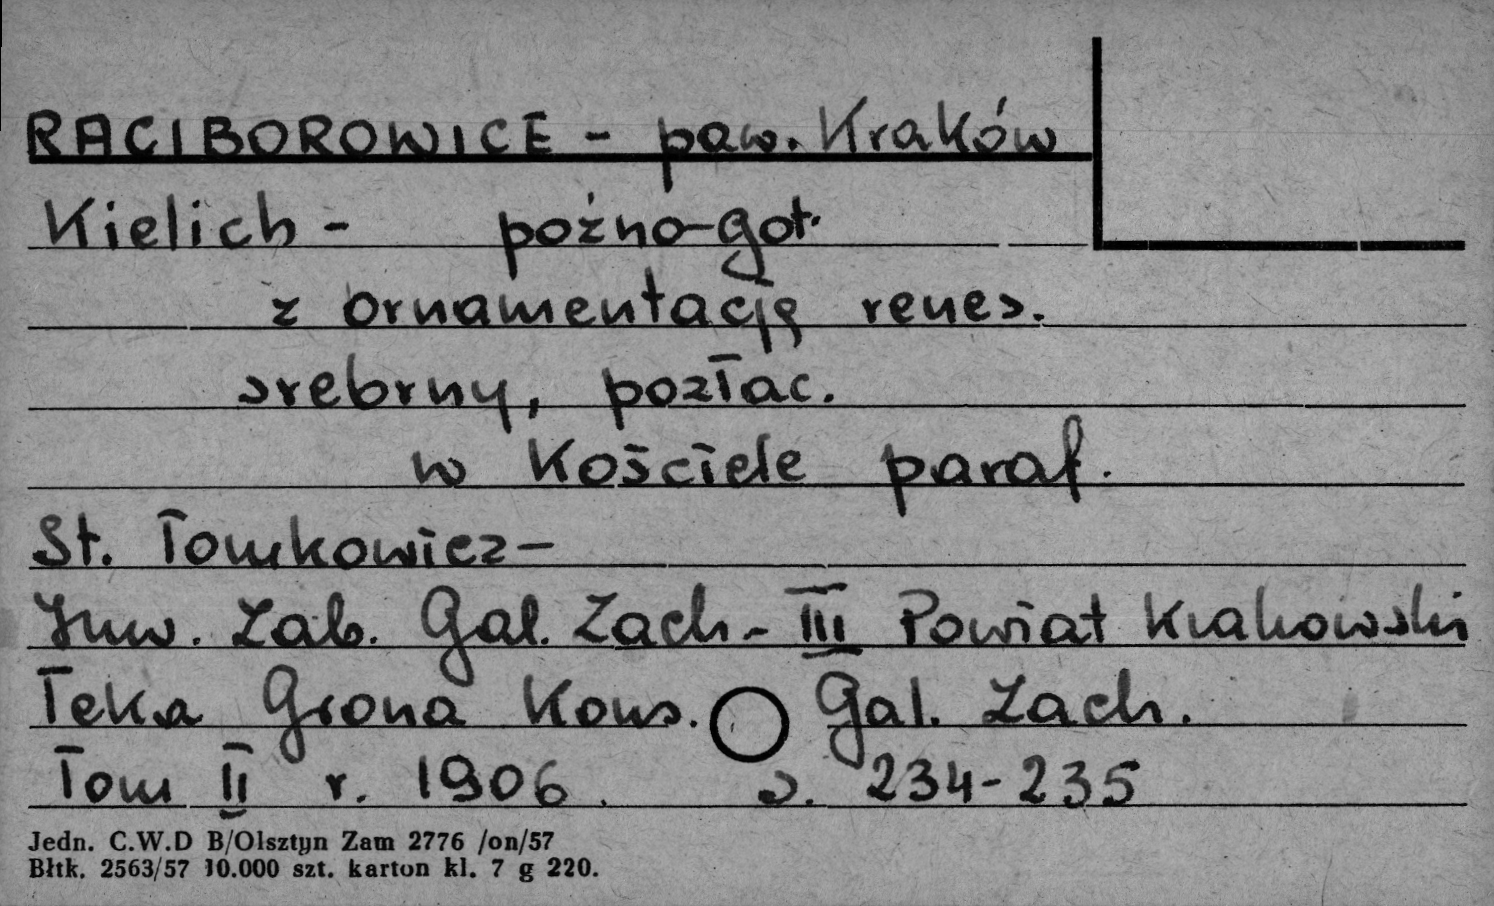 RACIBOROWICE - paw. Kraków
Kielich - poźno-got.
z ornamentacją renes.
srebrny, pozłac.
w Kościele paraf.
St. Tomkowicz -
Inw. Zab. Gal. Zach - III Powiat Krakowski
Teka Grona Kons. Gal. Zach.
Tom II r. 1906. s. 234-235
Jedn. C.W.D B/Olsztyn Zam 2776 /on/57
Błtk. 2563/57 10.000 szt. karton kl. 7 g 220.